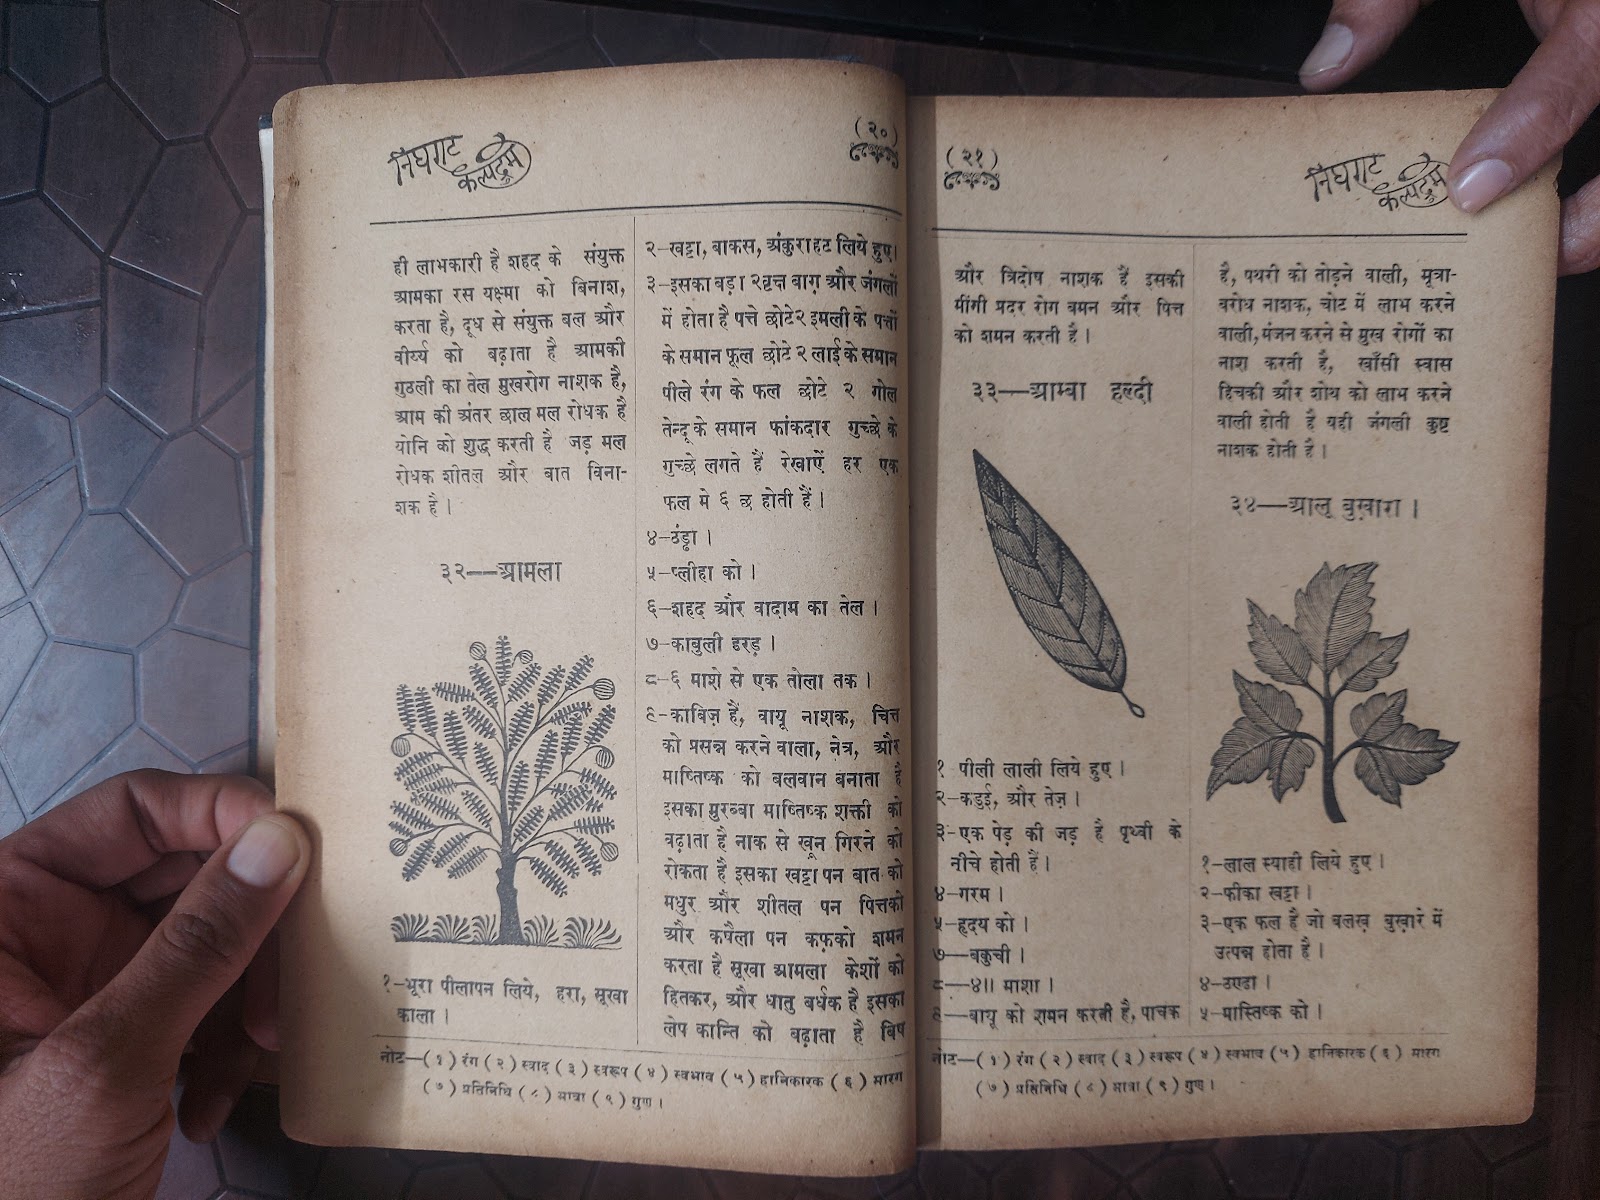 निघण्ट
कल्पद्रुम
(२०)
ही लाभकारी है शहद के संयुक्त
आमका रस यक्ष्मा को बिनाश,
करता है, दूध से संयुक्त बल और
वीर्य्य को बढ़ाता है आमकी
गुठली का तेल मुखरोग नाशक है,
आम की अंतर छाल मल रोधक है
योनि को शुद्ध करती है जड़ मल
रोधक शीतल और बात विना-
शक है।
३२—आमला
१-भूरा पीलापन लिये, हरा, सूखा
काला।
२-खट्टा, बाकस, अंकुराहट लिये हुए।
३-इसका बड़ा २वृत्त बाग़ और जंगलों
में होता है पत्ते छोटे२ इमली के पत्तों
के समान फूल छोटे २ लाई के समान
पीले रंग के फल छोटे २ गोल
तेन्दू के समान फांकदार गुच्छे के
गुच्छे लगते हैं रेखाऐं हर एक
फल मे ६ छ होती हैं।
४-ठंढ़ा।
५-प्लीहा को।
६-शहद और बादाम का तेल।
७-काबुली हरड़।
८-६ माशे से एक तोला तक।
९-काबिज़ हैं, वायू नाशक, चित्त
को प्रसन्न करने वाला, नेत्र, और
माष्तिष्क को बलवान बनाता है
इसका मुरब्बा माष्तिष्क शक्ती को
बढ़ाता है नाक से खून गिरने को
रोकता है इसका खट्टा पन बात को
मधुर और शीतल पन पित्तको
और कषैला पन कफ़को शमन
करता है सूखा आमला केशों को
हितकर, और धातु बर्धक है इसका
लेप कान्ति को बढ़ाता है बिष
नोट—(१) रंग (२) स्वाद (३) स्वरूप (४) स्वभाव (५) हानिकारक (६) मारग
(७) प्रतिनिधि (८) मात्रा (९) गुण।
(२१)
निघण्ट
कल्पद्रुम
और त्रिदोष नाशक हैं इसकी
मींगी प्रदर रोग वमन और पित्त
को शमन करती है।
३३—आम्बा हल्दी
१ पीली लाली लिये हुए।
२-कडुई, और तेज़।
३-एक पेड़ की जड़ है पृथ्वी के
नीचे होती हैं।
४-गरम।
५-हृदय को।
७-बकुची।
८-४॥ माशा।
९-बायू को शमन करती है, पाचक
है, पथरी को तोड़ने वाली, मूत्रा-
वरोध नाशक, चोट में लाभ करने
वाली,मंजन करने से मुख रोगों का
नाश करती है, खाँसी स्वास
हिचकी और शोथ को लाभ करने
वाली होती है यही जंगली कुष्ट
नाशक होती है।
३४—आलू बुखारा।
१-लाल स्याही लिये हुए।
२-फीका खट्टा।
३-एक फल है जो बलख बुखारे में
उत्पन्न होता है।
४-ठण्डा।
५-मास्तिष्क को।
नोट—(१) रंग (२) स्वाद (३) स्वरूप (४) स्वभाव (५) हानिकारक (६) मारग
(७) प्रतिनिधि (८) मात्रा (९) गुण।